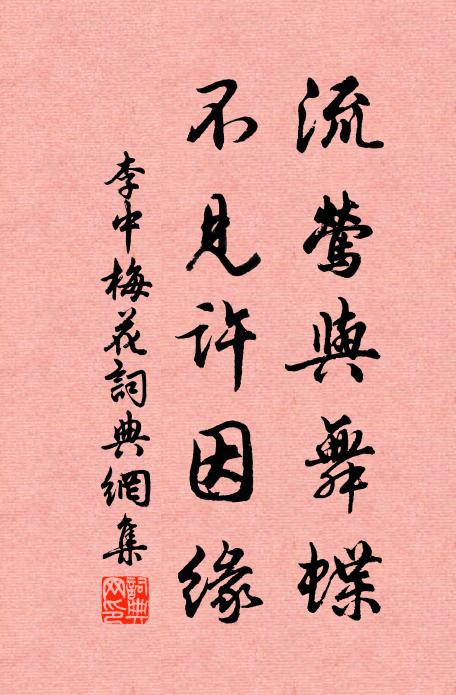 流鶯與舞蝶
不見許因緣
李中梅花詞典網集
詞典網印